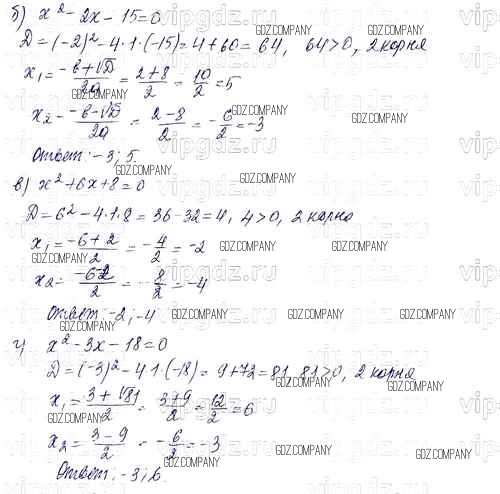 б) x² - 2x - 15 = 0
D = (-2)² - 4·1·(-15) = 4 + 60 = 64, 64 > 0, 2 корня
x₁ = (-b+√D)/2a = (2+8)/2 = 10/2 = 5
x₂ = (-b-√D)/2a = (2-8)/2 = -6/2 = -3
Ответ: -3; 5.
в) x² + 6x + 8 = 0
D = 6² - 4·1·8 = 36 - 32 = 4, 4 > 0, 2 корня
x₁ = (-6+2)/2 = -4/2 = -2
x₂ = (-6-2)/2 = -8/2 = -4
Ответ: -2; -4
г) x² - 3x - 18 = 0
D = (-3)² - 4·1·(-18) = 9 + 72 = 81, 81 > 0, 2 корня
x₁ = (3+√81)/2 = (3+9)/2 = 12/2 = 6
x₂ = (3-9)/2 = -6/2 = -3
Ответ: -3; 6.
GDZ.COMPANY
vipgdz.ru